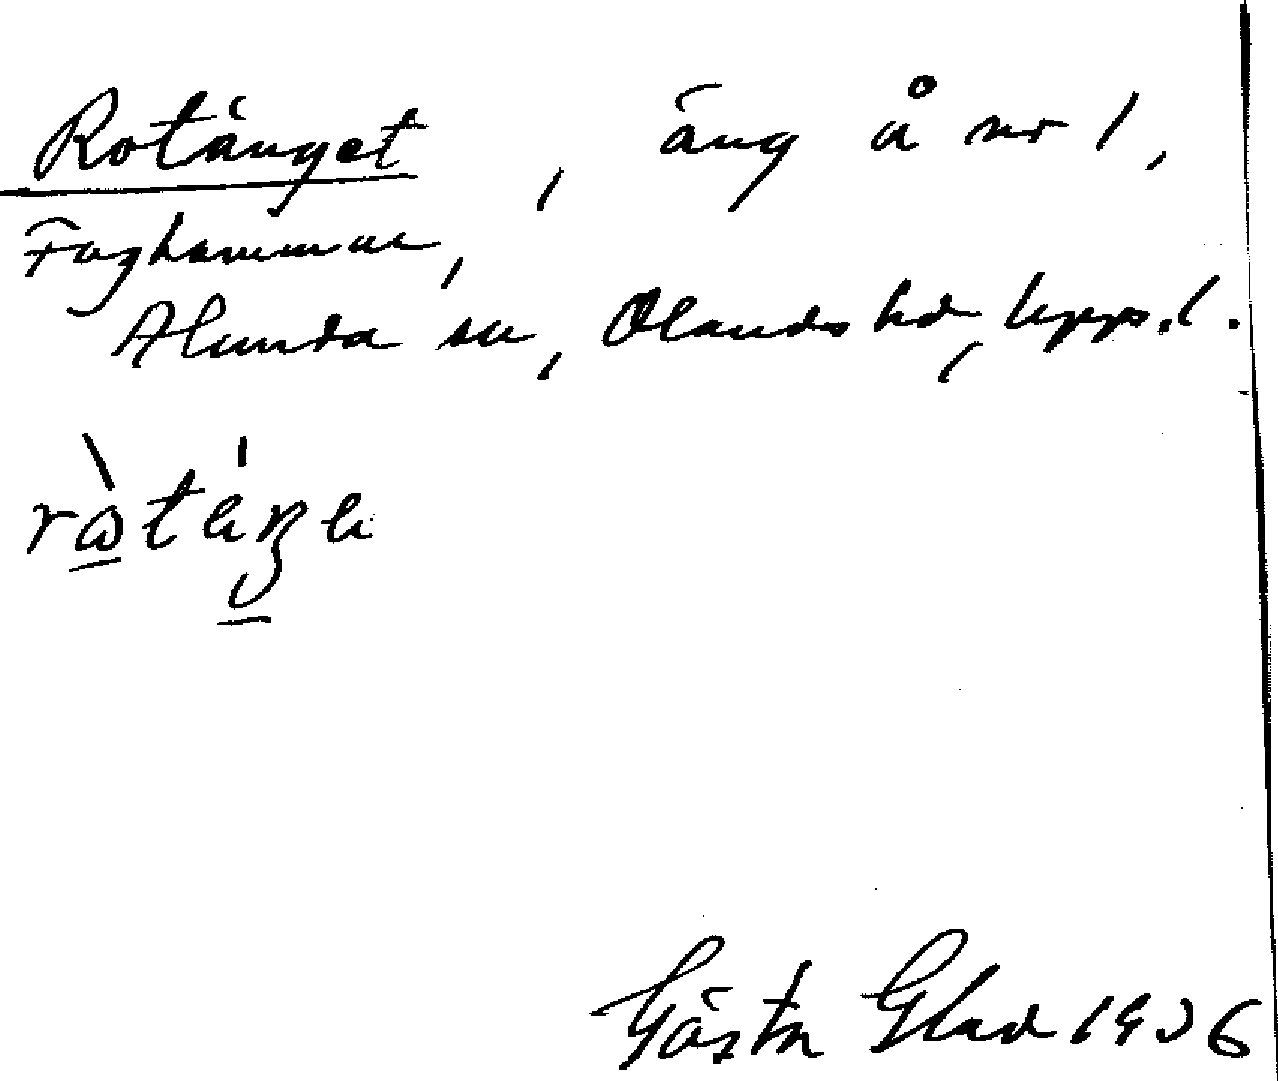 Rotänget, äng å nr 1,
Foghammar,
Alunda sn, Olands hd, Upps. l.
Gösta Glad 1936